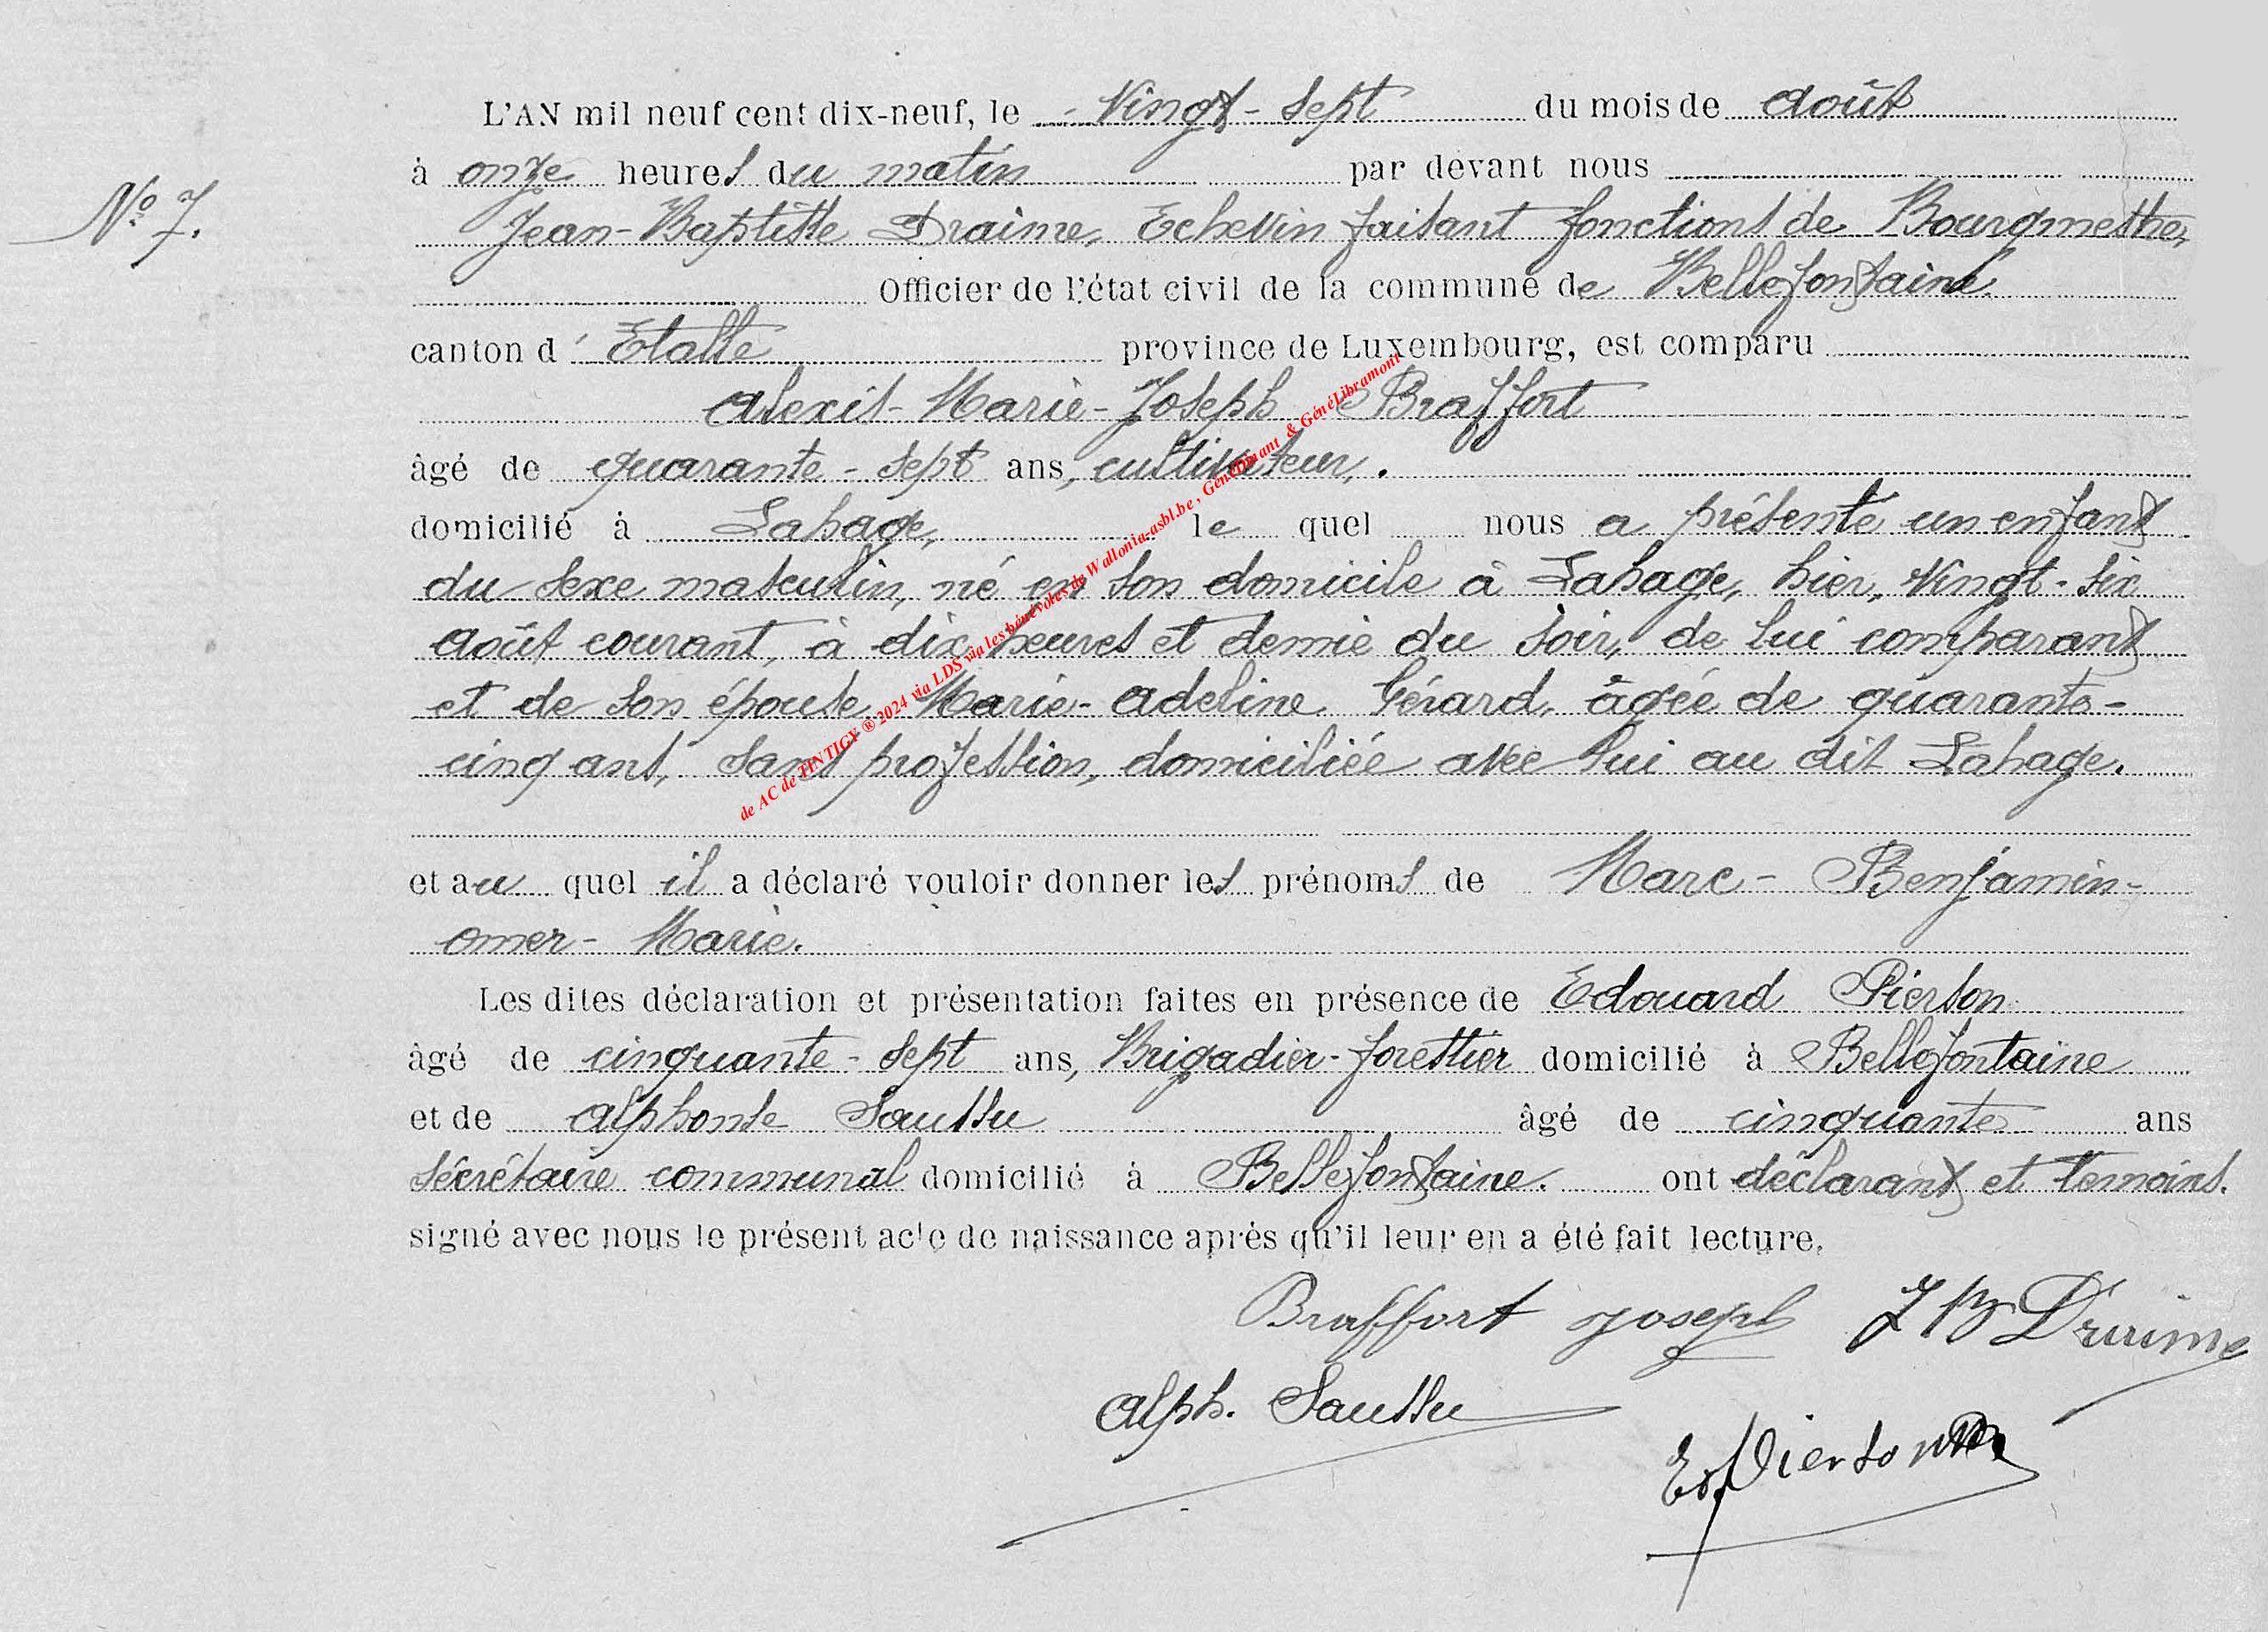 L'AN mil neuf cent dix-neuf, le Vingt-sept du mois de Août
à onze heures du matin par devant nous
N° 7.
Jean-Baptiste Draime, Echevin faisant fonctions de Bourgmestre,
Officier de l'état civil de la commune de Bellefontaine.
canton d'Etalle province de Luxembourg, est comparu
Alexis-Marie-Joseph Braffort
âgé de quarante-sept ans, cultivateur,.
domicilié à Lahage, le quel nous a présenté un enfant
du sexe masculin, né en son domicile à Lahage, hier, vingt-six
Août courant, à dix heures et demie du soir, de lui comparant
et de son épouse Marie-Adeline Gérard, âgée de quarante-
cinq ans, sans profession, domiciliée avec lui au dit Lahage.
de AC de TINTIGY ® 2024 via LDS via les bénévoles de Wallonia-asbl.be, GénéDinant & GénéLibramont
et au quel il a déclaré vouloir donner les prénoms de Marc-Benjamin-
Omer-Marie.
Les dites déclaration et présentation faites en présence de Edouard Pierson
âgé de cinquante-sept ans, Brigadier-forestier domicilié à Bellefontaine
et de Alphonse Saussu âgé de cinquante ans
Sécrétaire communal domicilié à Bellefontaine. ont déclarant et temoins.
signé avec nous le présent acte de naissance après qu'il leur en a été fait lecture.
Braffort Joseph J B Draime
Alph. Saussu
Ed Pierson